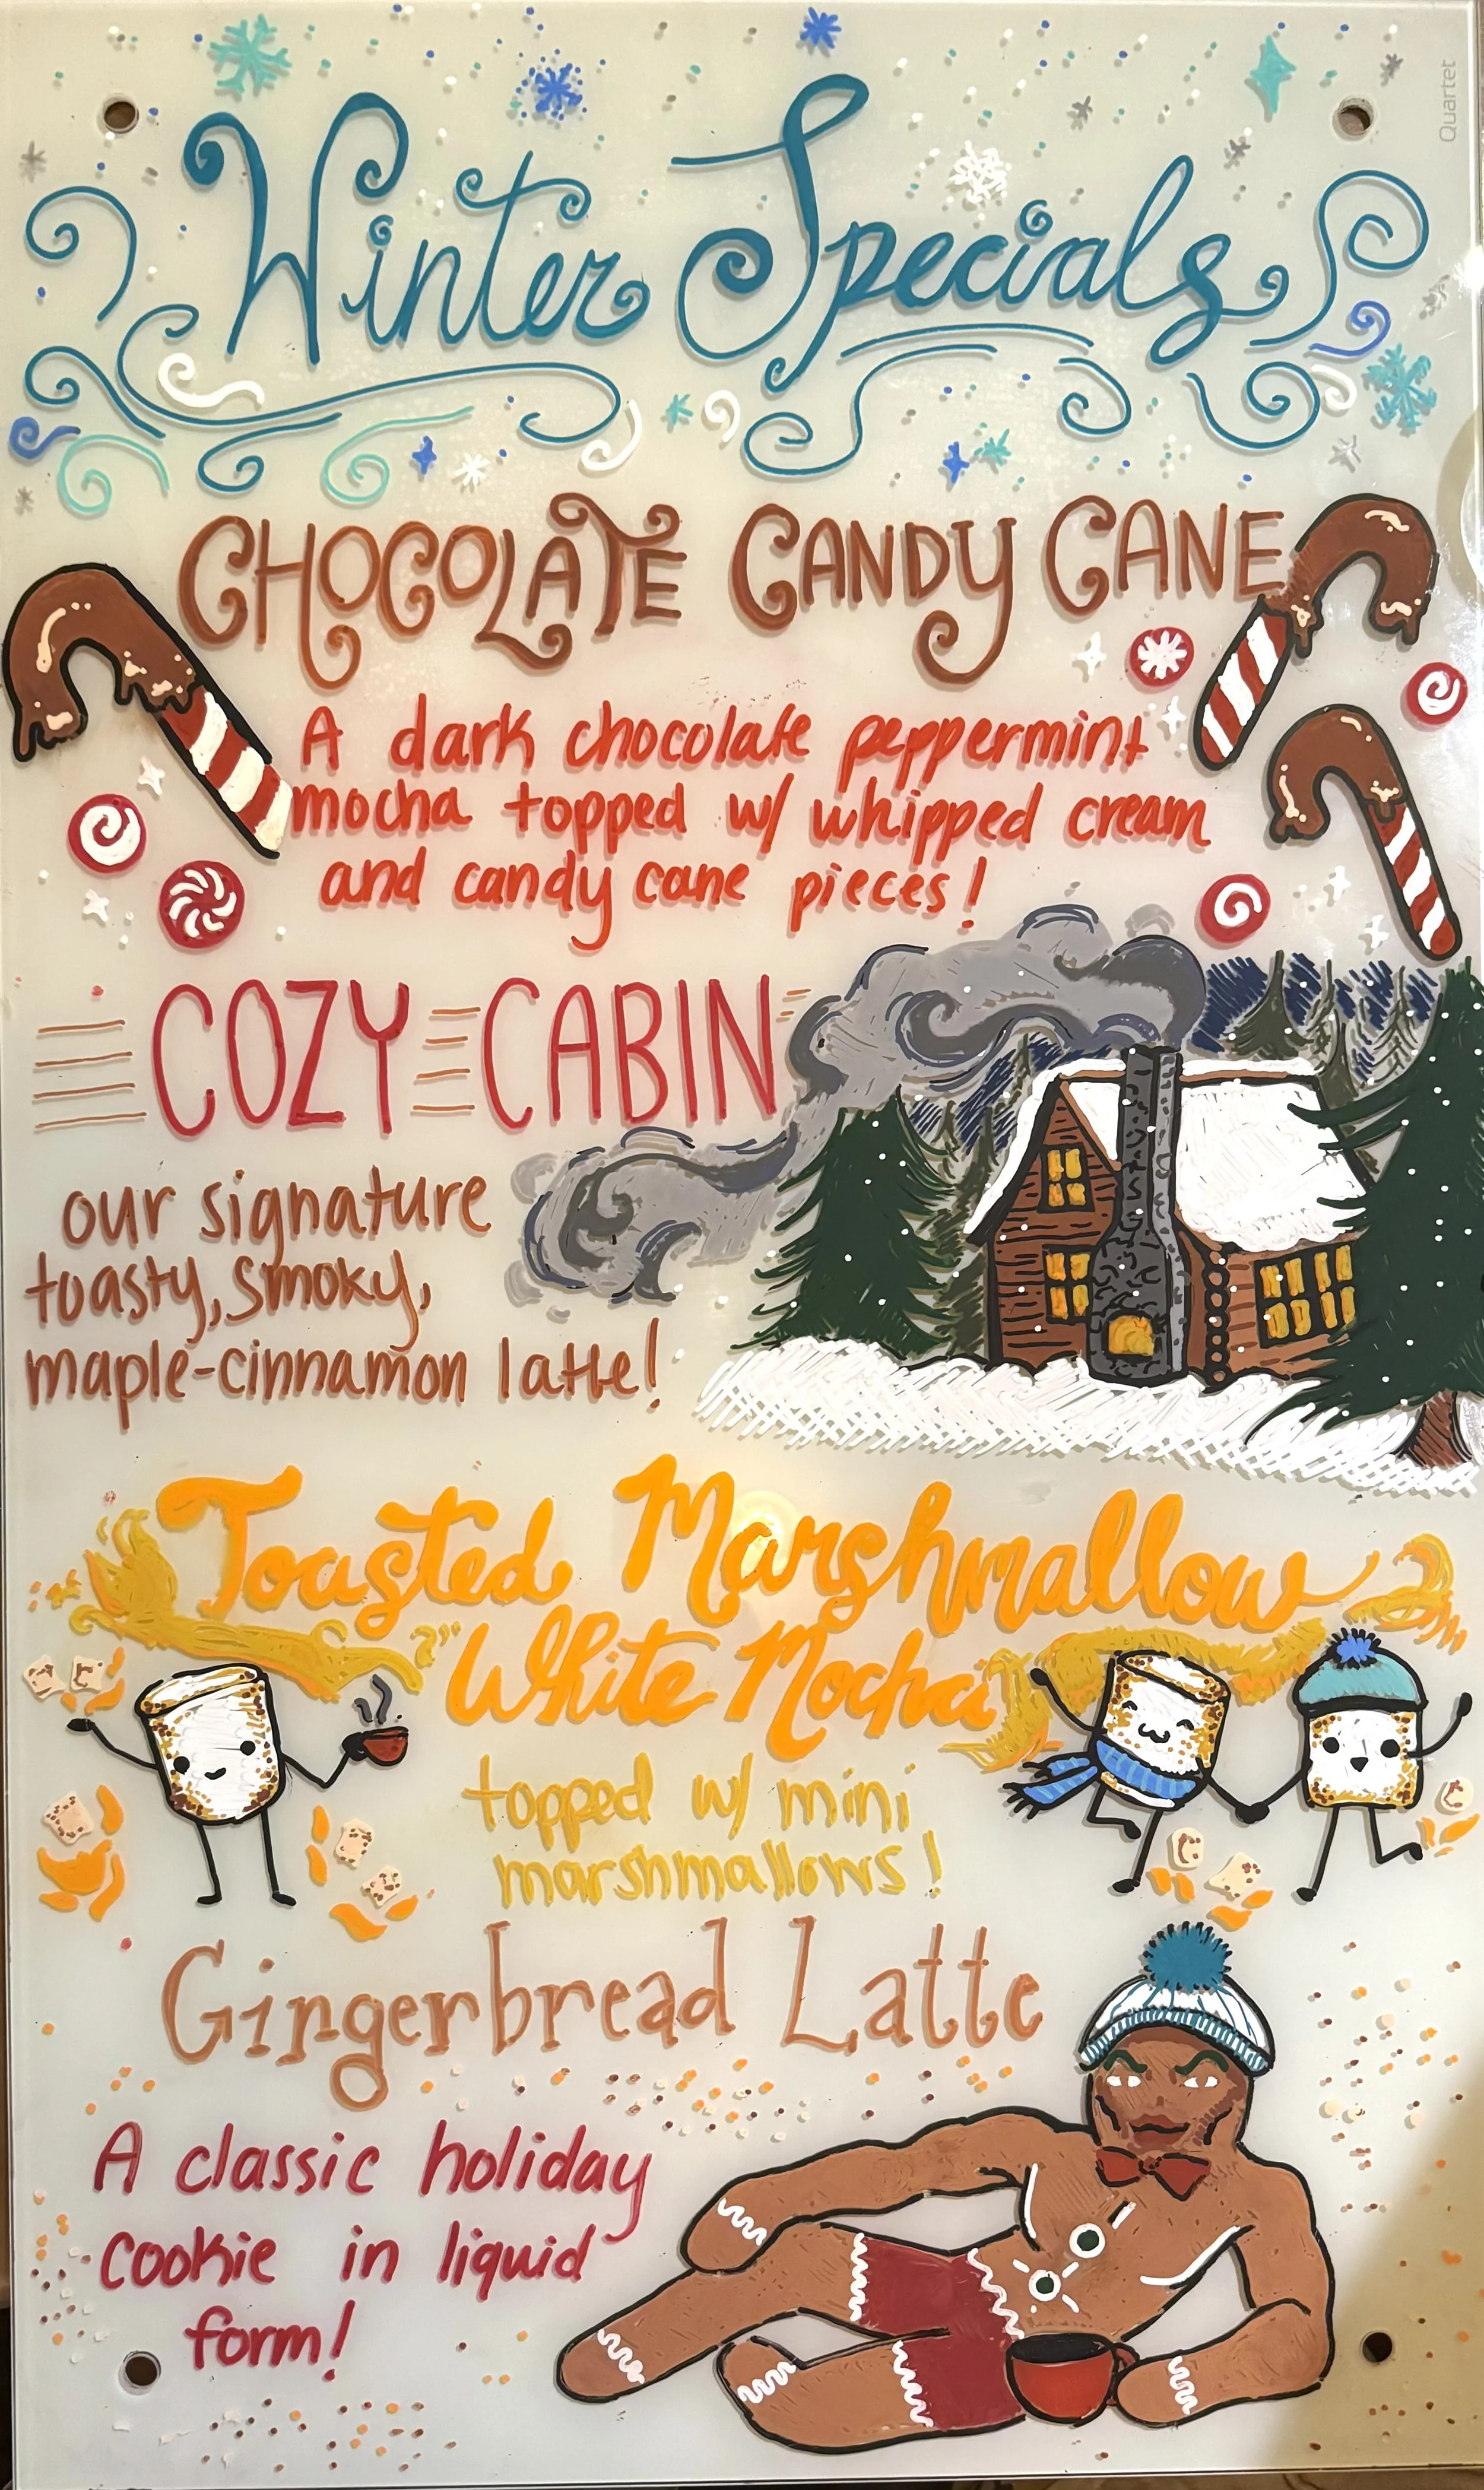 Quartet
Winter Specials
CHOCOLATE CANDY CANE
A dark chocolate peppermint
mocha topped w/ whipped cream
and candy cane pieces!
COZY CABIN
our signature
toasty, smoky,
maple-cinnamon latte!
Toasted Marshmallow
White Mocha
topped w/ mini
marshmallows!
Gingerbread Latte
A classic holiday
cookie in liquid
form!